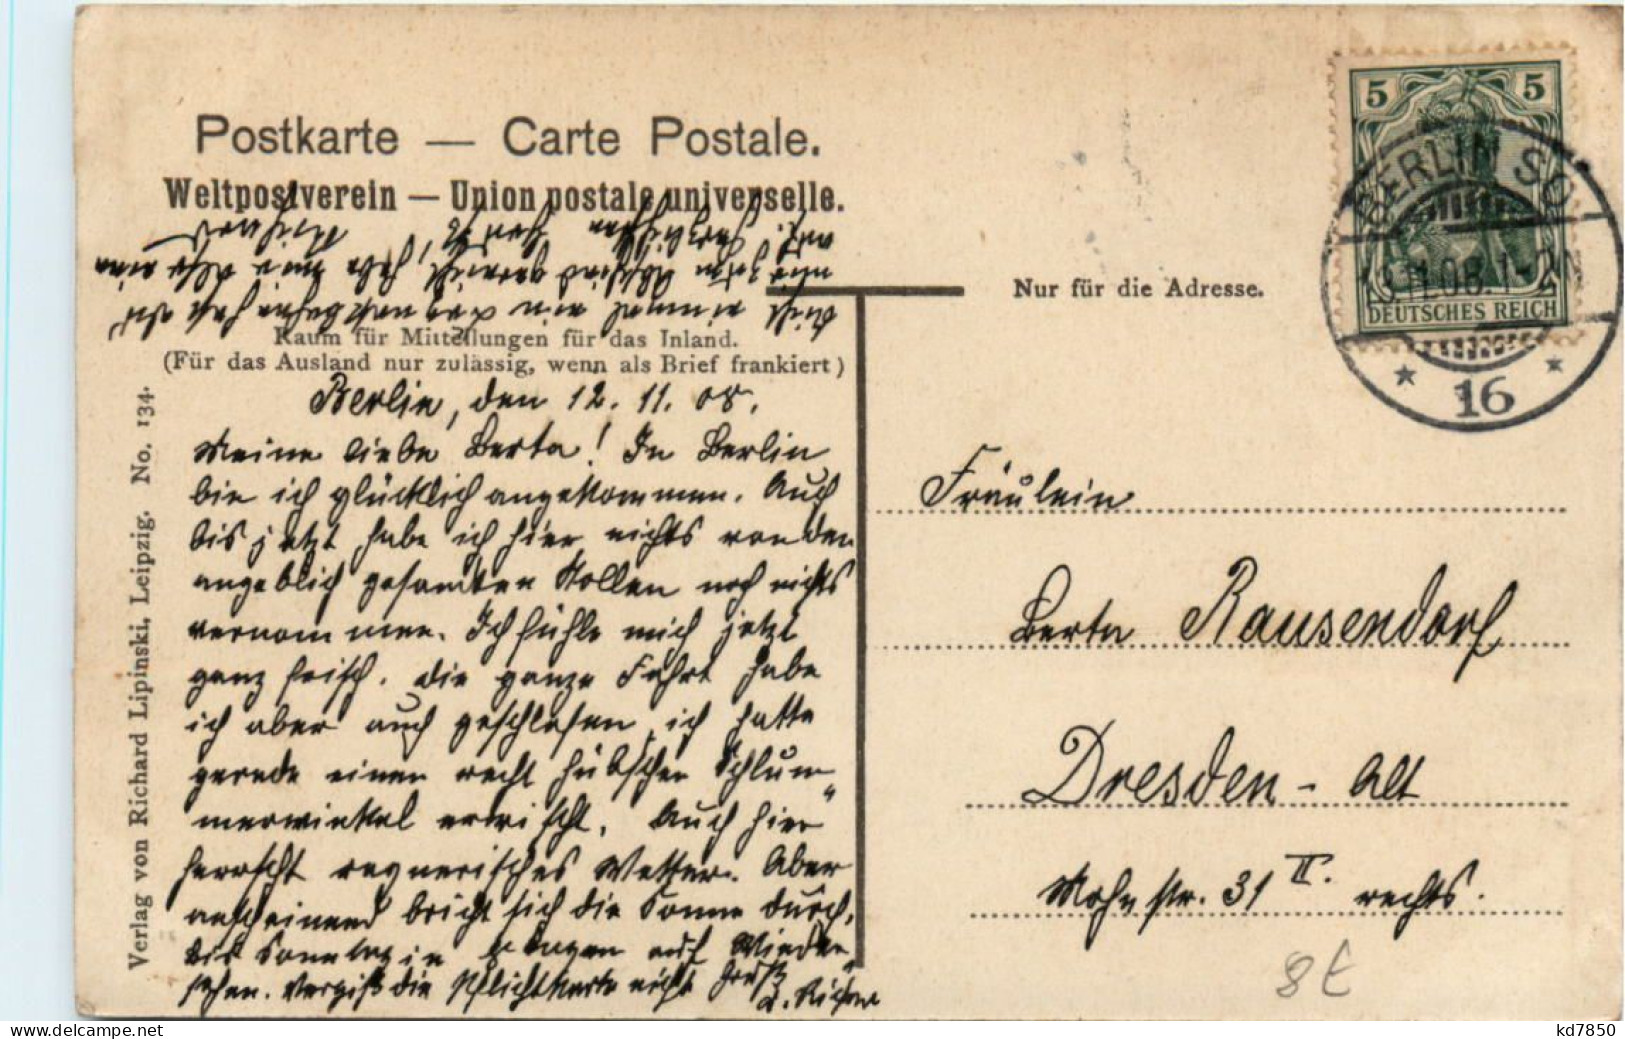 Postkarte — Carte Postale.
Weltpostverein — Union postale universelle.
Raum für Mitteilungen für das Inland.
(Für das Ausland nur zulässig, wenn als Brief frankiert)
Berlin, den 12. 11. 08.
Meine liebe Berta! In Berlin
bin ich glücklich angekommen. Auch
bis jetzt habe ich hier nichts von den
angeblich gesandten Stollen noch nichts
vernommen. Ich fühle mich jetzt
ganz frisch. Die ganze Fahrt habe
ich aber auch geschlafen, ich hatte
gerade einen recht hübschen Schlum-
merwinkel erwischt. Auch hier
herrscht regnerisches Wetter. Aber
anscheinend bricht sich die Sonne durch.
Bis Sonntag in auf Wieder-
sehen. Vergiß die Pflichtkarte nicht Gruß
Verlag von Richard Lipinski, Leipzig. No. 134.
Nur für die Adresse.
Fräulein
Berta Rausendorf
Dresden - Alt
Mohnstr. 31 II. rechts.
8t
5 5
DEUTSCHES REICH
BERLIN SO
13.11.08.1-2
* 16 *
kd7850